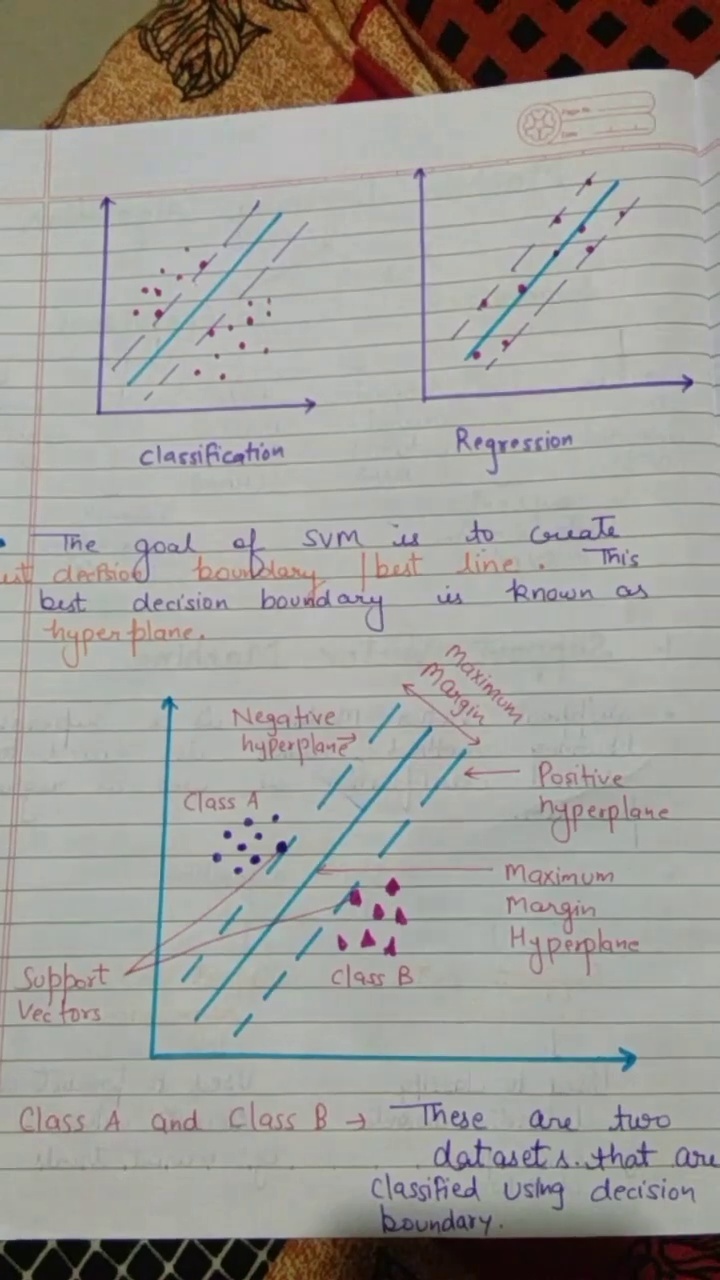 Classification
Regression
The goal of SVM is to create
decision boundary / best line. This
best decision boundary is known as
hyperplane.
Maximum
Margin
Negative
hyperplane
Class A
Positive
hyperplane
Maximum
Margin
Hyperplane
Support
Vectors
Class B
Class A and Class B → These are two
datasets. that are
classified using decision
boundary.